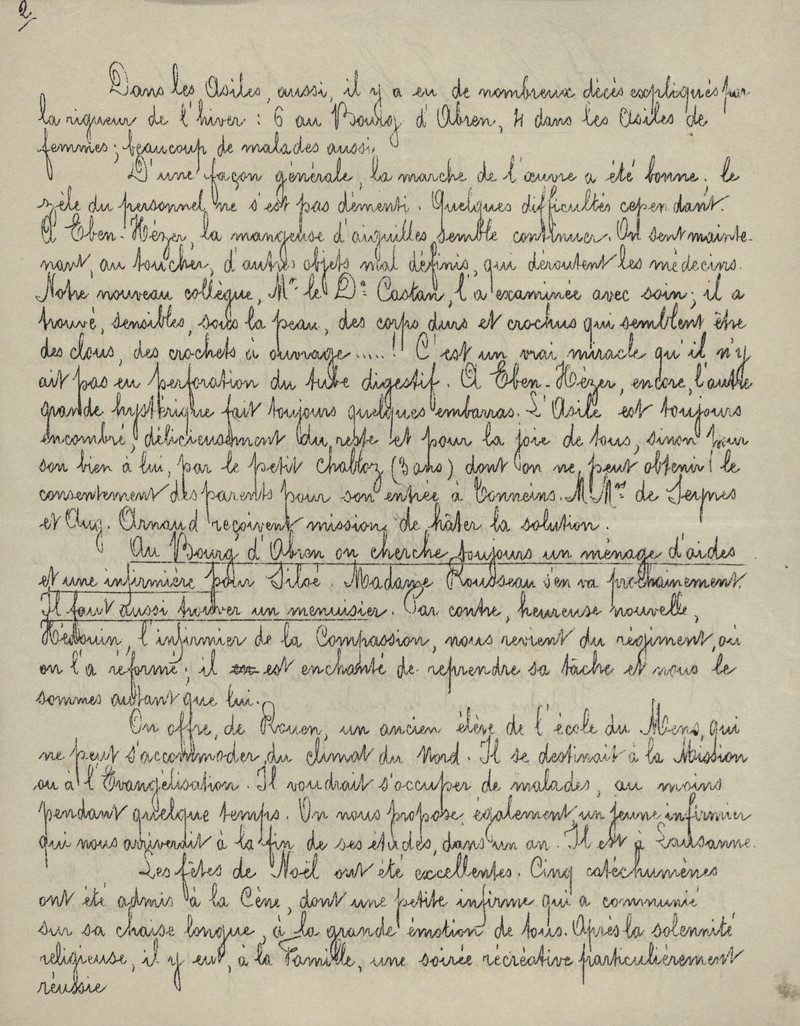 2
Dans les Asiles, aussi, il y a eu de nombreux décès expliqués par
la rigueur de l'hiver : 6 au Bourg d'Abren, 4 dans les Asiles de
femmes ; beaucoup de malades aussi.
D'une façon générale, la marche de l'œuvre a été bonne ; le
zèle du personnel ne s'est pas démenti. Quelques difficultés cependant.
A Eben-Hézer, la mangeuse d'aiguilles semble continuer. On sent mainte-
nant, au toucher, d'autres objets mal définis, qui déroutent les médecins.
Notre nouveau collègue, Mr le Dr Castan, l'a examinée avec soin ; il a
trouvé, sensibles, sous la peau, des corps durs et crochus qui semblent être
des clous, des crochets à ouvrage.....! C'est un vrai miracle qu'il n'y
ait pas eu perforation du tube digestif. A Eben-Hézer, encore, l'autre
grande hystérique fait toujours quelques embarras. L'Asile est toujours
encombré, délicieusement du reste et pour la joie de tous, sinon pour
son bien à lui, par le petit Chabloz (3 ans) dont on ne peut obtenir le
consentement des parents pour son entrée à Tonneins. M.Mrs de Serpes
et Aug. Arnaud reçoivent mission de hâter la solution.
Au Bourg d'Abren on cherche toujours un ménage d'aides
et une infirmière pour Siloé. Madame Rousseau s'en va prochainement.
Il faut aussi trouver un menuisier. Par contre, heureuse nouvelle,
Hédouin, l'infirmier de la Compassion, nous revient du régiment, où
on l'a réformé ; il est enchanté de reprendre sa tâche et nous le
sommes autant que lui.
On offre, de Rouen, un ancien élève de l'école du Mens, qui
ne peut s'accommoder du climat du Nord. Il se destinait à la Mission
ou à l'Evangélisation. Il voudrait s'occuper de malades, au moins
pendant quelque temps. On nous propose également un jeune infirmier
qui nous arriverait à la fin de ses études, dans un an. Il est à Lausanne.
Les fêtes de Noël ont été excellentes. Cinq catéchumènes
ont été admis à la Cène, dont une petite infirme qui a communié
sur sa chaise longue, à la grande émotion de tous. Après la solennité
religieuse, il y eut, à la Famille, une soirée récréative particulièrement
réussie